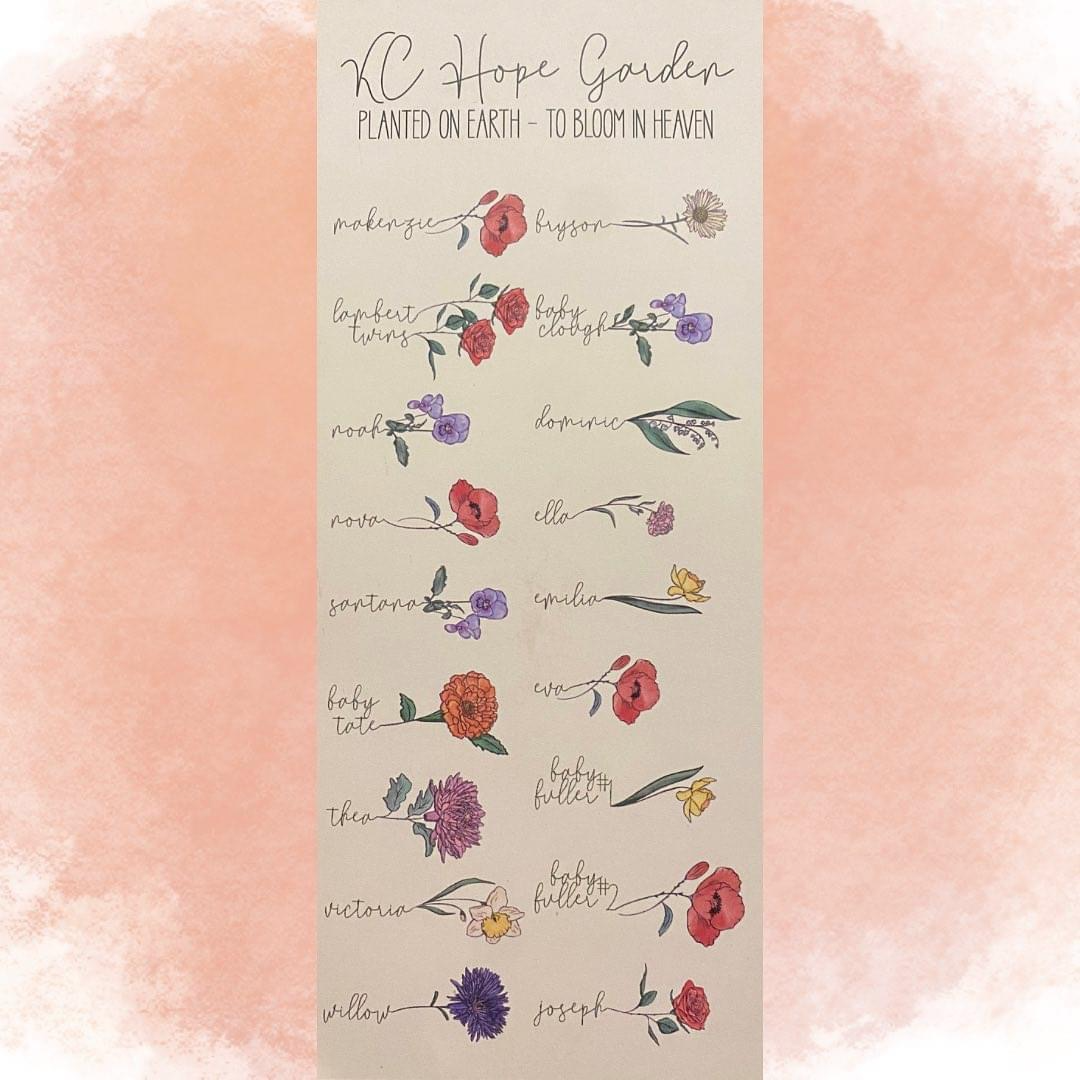 KC Hope Garden
PLANTED ON EARTH - TO BLOOM IN HEAVEN
makenzie
bryson
lambert
twins
baby
clough
noah
dominic
nova
ella
santana
emilia
baby
tate
eva
thea
baby
fuller #1
victoria
baby
fuller #2
willow
joseph